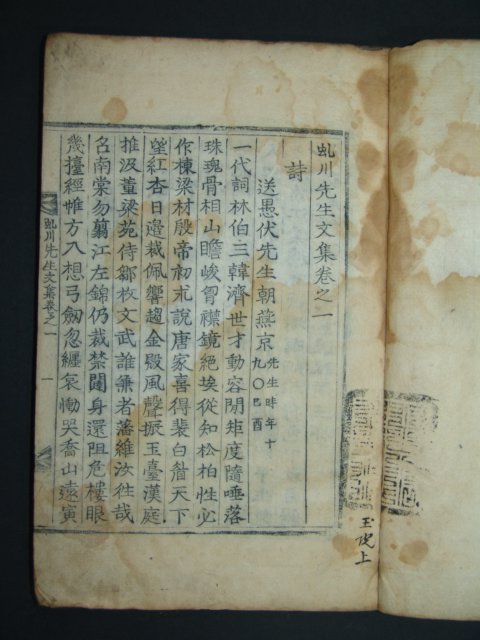 虬川先生文集卷之一
詩
送愚伏先生朝燕京 先生時年十九〇己酉
一代詞林伯三韓濟世才動容閒矩度隨唾落
珠瑰骨相山瞻峻胷襟鏡絶埃從知松柏性必
作棟梁材殷帝初求說唐家喜得裴白首天下
望紅杏日邊裁佩響趨金殿風聲振玉臺漢庭
推汲董梁苑侍鄒枚文武誰兼者藩維汝往哉
召南棠勿翦江左錦仍裁禁闥身還阻危樓眼
幾擡經帷方入想弓劒忽纏哀慟哭喬山遠寅
虬川先生文集卷之一 一
上